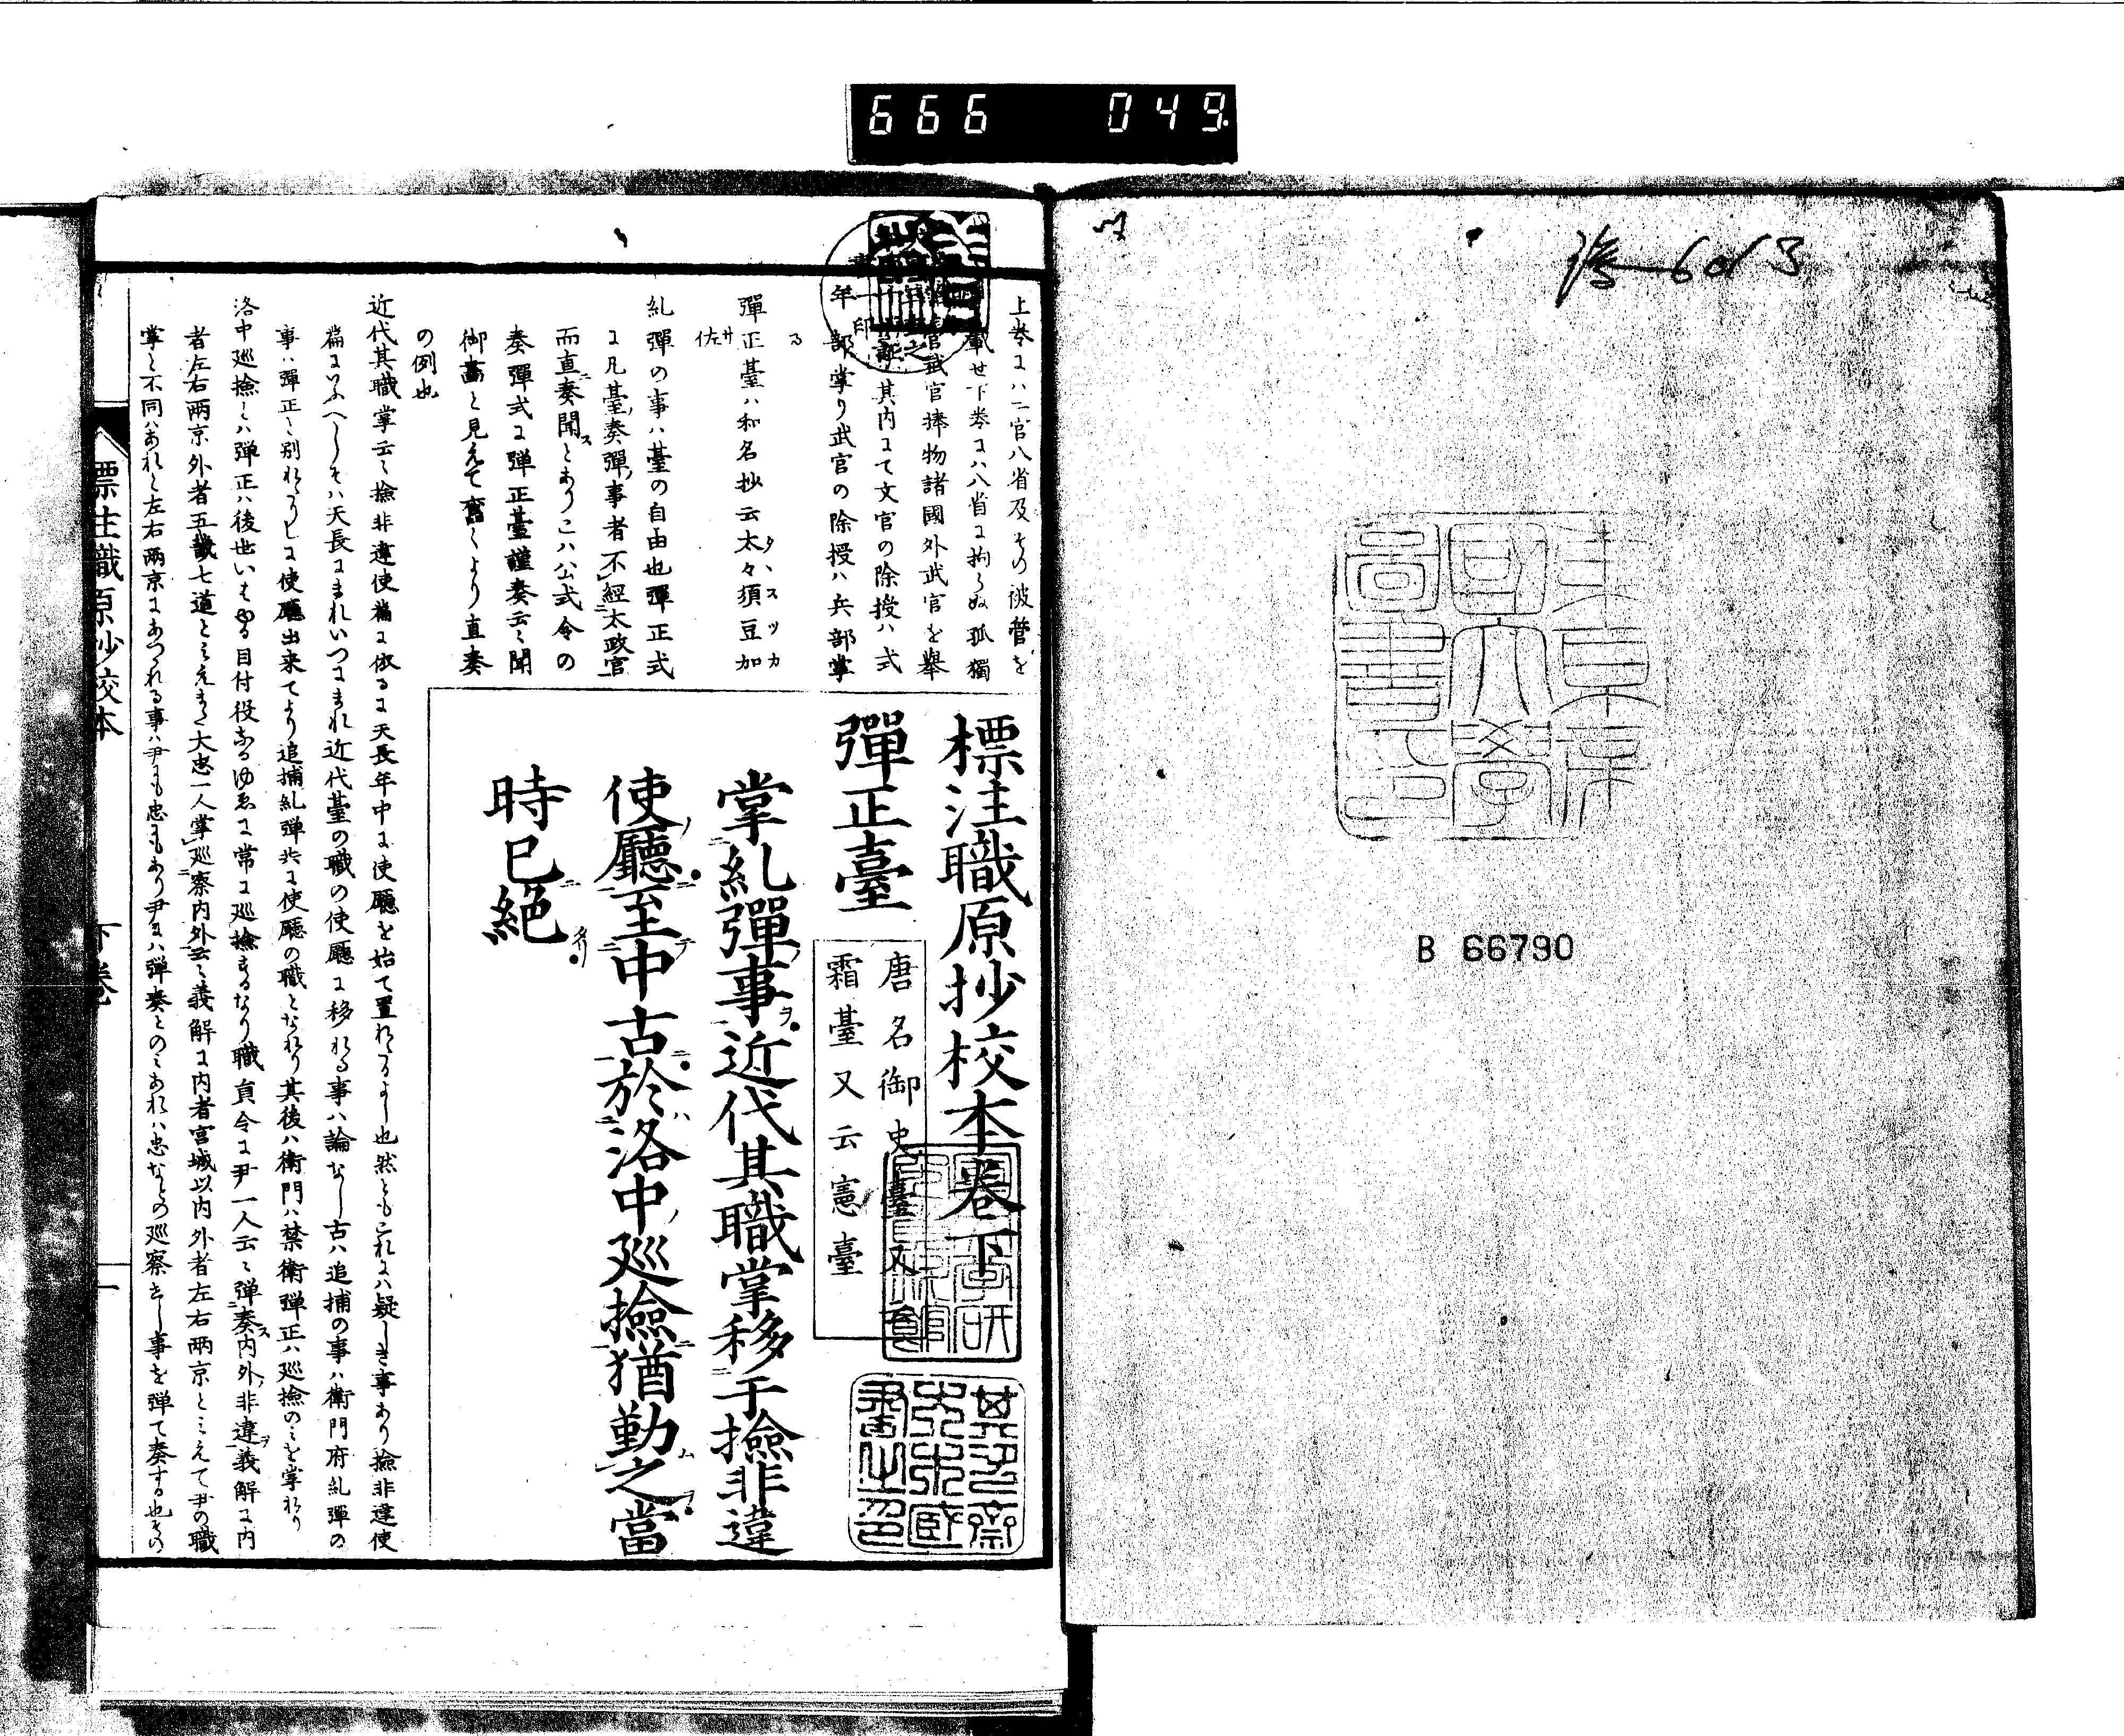 666 049
B 66790
東京
帝國大學
圖書印
標注職原抄校本卷下
彈正臺
唐名御史臺又云
霜臺又云憲臺
掌糺彈事近代其職掌移于撿非違
使廳至中古於洛中巡撿猶勤之當
時已絕
上卷ハ二官八省及その被管を
載せ下卷ハ八省に拘らぬ孤獨
官武官捧物諸國外武官を擧
其内にて文官の除授ハ式
部掌り武官の除授ハ兵部掌
る
彈正臺ハ和名抄云太々須豆加
佐
糺彈の事ハ臺の自由也彈正式
に凡臺奏彈事者不經太政官
而直奏聞とありこハ公式令の
奏彈式に彈正臺謹奏云々聞
御畫と見えて舊くより直奏
の例也
近代其職掌云々撿非違使篇に依るに天長年中に使廳を始て置れたるよし也然ともこれにハ疑しき事あり撿非違使
篇にいふへしそハ天長にまれいつにまれ近代臺の職の使廳に移れる事ハ論なし古ハ追捕の事ハ衛門府糺彈の
事ハ彈正と別れたりしに使廳出來てより追捕糺彈共に使廳の職となれり其後ハ衛門ハ禁衛彈正ハ巡撿のミを掌れり
洛中巡撿とハ彈正ハ後世いはゆる目付役なるゆゑに常に巡撿するなり職員令に尹一人云々彈奏内外非違義解に内
者左右兩京外者五畿七道とみえまた大忠一人掌巡察内外云々義解に内者宮城以内外者左右兩京とミえて尹の職
掌と不同ハあれと左右兩京にあつかれる事ハ尹にも忠にもあり尹にハ彈奏とのミあれハ忠なとの巡察せし事を彈て奏する也その
標注職原抄校本
下卷
一